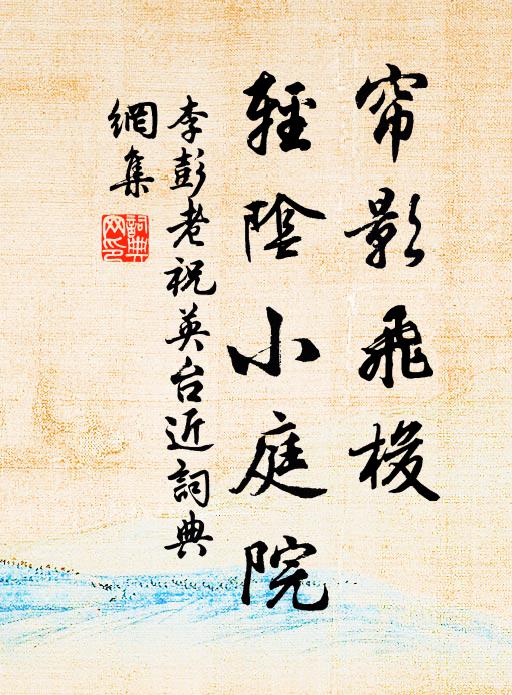 帘影飛梭
輕陰小庭院
李彭老祝英台近詞典
網集
詞典
网印